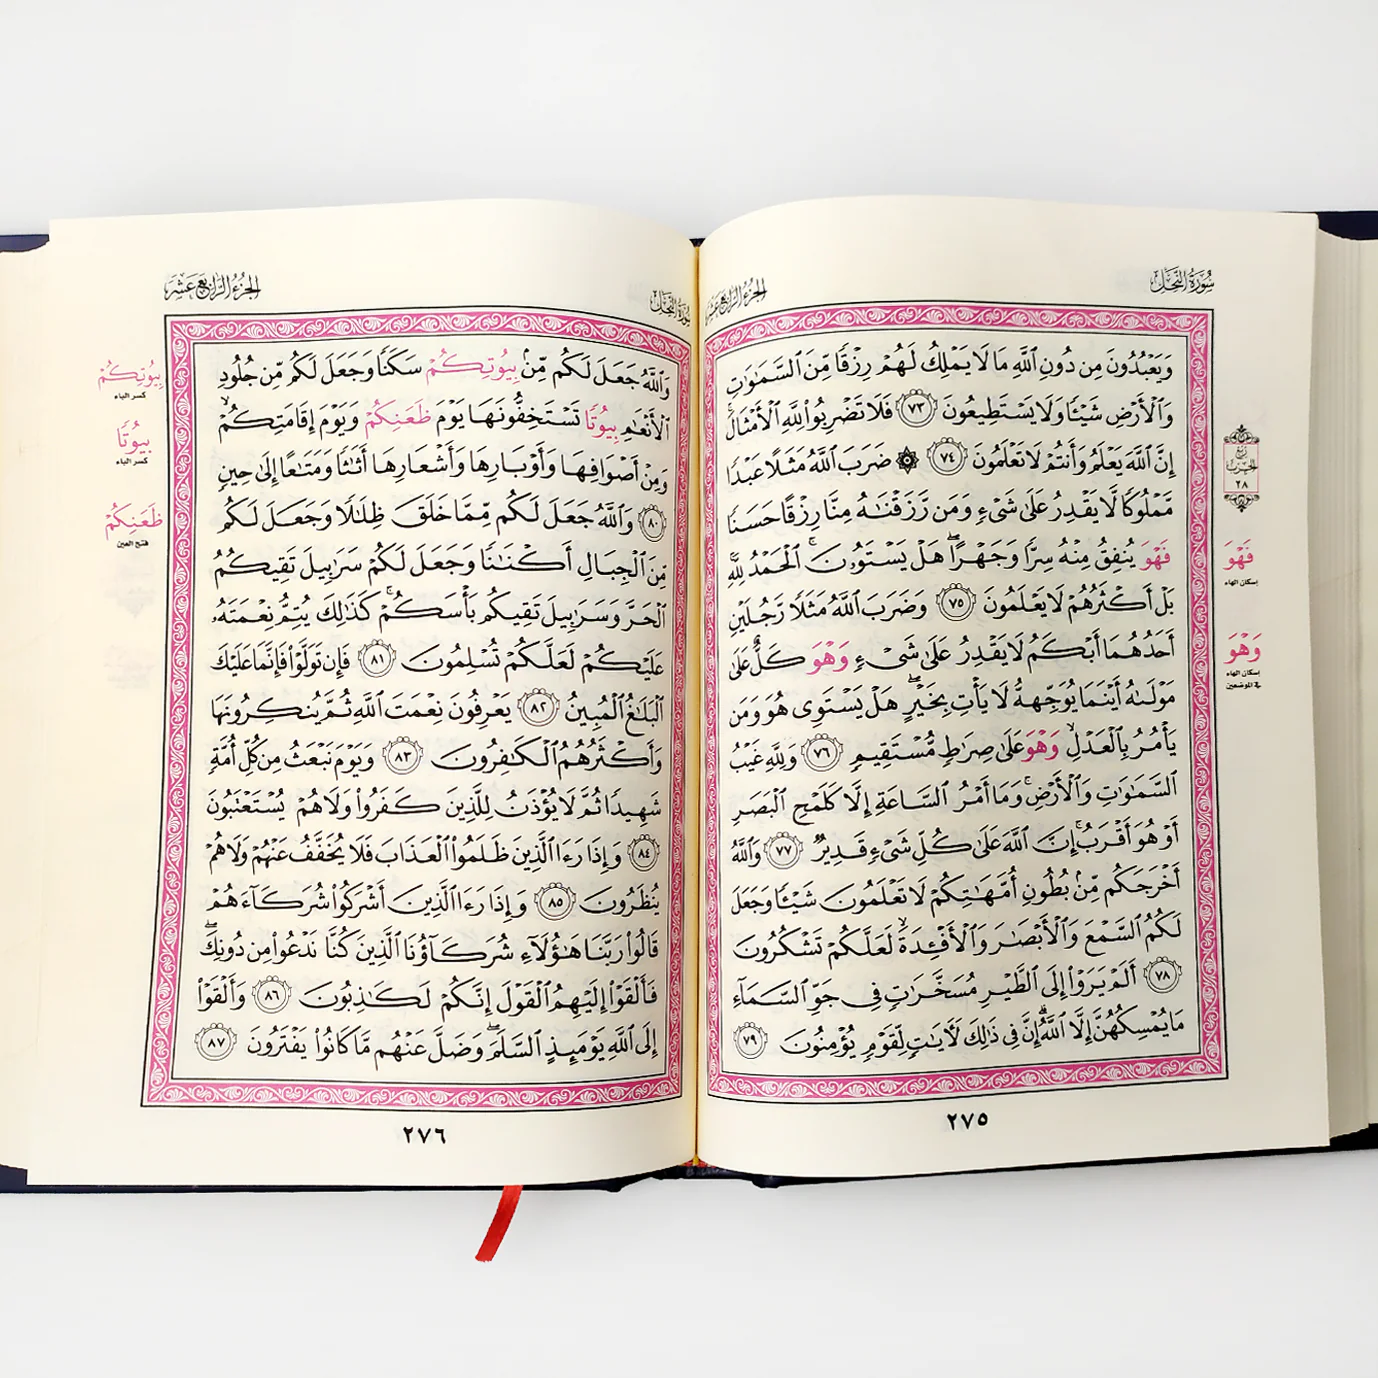 سُورَةُ النَّحْلِ
الجُزْءُ الرَّابِعَ عَشَرَ
وَيَعْبُدُونَ مِن دُونِ ٱللَّهِ مَا لَا يَمْلِكُ لَهُمْ رِزْقًا مِّنَ ٱلسَّمَٰوَٰتِ
وَٱلْأَرْضِ شَيْـًٔا وَلَا يَسْتَطِيعُونَ ٧٣ فَلَا تَضْرِبُوا۟ لِلَّهِ ٱلْأَمْثَالَ ۚ
إِنَّ ٱللَّهَ يَعْلَمُ وَأَنتُمْ لَا تَعْلَمُونَ ٧٤ ۞ ضَرَبَ ٱللَّهُ مَثَلًا عَبْدًا
مَّمْلُوكًا لَّا يَقْدِرُ عَلَىٰ شَىْءٍ وَمَن رَّزَقْنَٰهُ مِنَّا رِزْقًا حَسَنًا
فَهْوَ يُنفِقُ مِنْهُ سِرًّا وَجَهْرًا ۖ هَلْ يَسْتَوُۥنَ ۚ ٱلْحَمْدُ لِلَّهِ
بَلْ أَكْثَرُهُمْ لَا يَعْلَمُونَ ٧٥ وَضَرَبَ ٱللَّهُ مَثَلًا رَّجُلَيْنِ
أَحَدُهُمَا أَبْكَمُ لَا يَقْدِرُ عَلَىٰ شَىْءٍ وَهْوَ كَلٌّ عَلَىٰ
مَوْلَىٰهُ أَيْنَمَا يُوَجِّههُّ لَا يَأْتِ بِخَيْرٍ ۖ هَلْ يَسْتَوِى هُوَ وَمَن
يَأْمُرُ بِٱلْعَدْلِ ۙ وَهْوَ عَلَىٰ صِرَٰطٍ مُّسْتَقِيمٍ ٧٦ وَلِلَّهِ غَيْبُ
ٱلسَّمَٰوَٰتِ وَٱلْأَرْضِ ۚ وَمَا أَمْرُ ٱلسَّاعَةِ إِلَّا كَلَمْحِ ٱلْبَصَرِ
أَوْ هُوَ أَقْرَبُ ۚ إِنَّ ٱللَّهَ عَلَىٰ كُلِّ شَىْءٍ قَدِيرٌ ٧٧ وَٱللَّهُ
أَخْرَجَكُم مِّنۢ بُطُونِ أُمَّهَٰتِكُمْ لَا تَعْلَمُونَ شَيْـًٔا وَجَعَلَ
لَكُمُ ٱلسَّمْعَ وَٱلْأَبْصَٰرَ وَٱلْأَفْـِٔدَةَ ۙ لَعَلَّكُمْ تَشْكُرُونَ
٧٨ أَلَمْ يَرَوْا۟ إِلَى ٱلطَّيْرِ مُسَخَّرَٰتٍ فِى جَوِّ ٱلسَّمَآءِ
مَا يُمْسِكُهُنَّ إِلَّا ٱللَّهُ ۗ إِنَّ فِى ذَٰلِكَ لَـَٔايَٰتٍ لِّقَوْمٍ يُؤْمِنُونَ ٧٩
رُبْع
الحِزْب
٢٨
فَهْوَ
إسكان الهاء
وَهْوَ
إسكان الهاء
في الموضعين
٢٧٥
سُورَةُ النَّحْلِ
الجُزْءُ الرَّابِعَ عَشَرَ
وَٱللَّهُ جَعَلَ لَكُم مِّنۢ بِيُوتِكُمْ سَكَنًا وَجَعَلَ لَكُم مِّن جُلُودِ
ٱلْأَنْعَٰمِ بِيُوتًا تَسْتَخِفُّونَهَا يَوْمَ ظَعَنِكُمْ وَيَوْمَ إِقَامَتِكُمْ ۙ
وَمِنْ أَصْوَافِهَا وَأَوْبَارِهَا وَأَشْعَارِهَا أَثَٰثًا وَمَتَٰعًا إِلَىٰ حِينٍ
٨٠ وَٱللَّهُ جَعَلَ لَكُم مِّمَّا خَلَقَ ظِلَٰلًا وَجَعَلَ لَكُم
مِّنَ ٱلْجِبَالِ أَكْنَٰنًا وَجَعَلَ لَكُمْ سَرَٰبِيلَ تَقِيكُمُ
ٱلْحَرَّ وَسَرَٰبِيلَ تَقِيكُم بَأْسَكُمْ ۚ كَذَٰلِكَ يُتِمُّ نِعْمَتَهُۥ
عَلَيْكُمْ لَعَلَّكُمْ تُسْلِمُونَ ٨١ فَإِن تَوَلَّوْا۟ فَإِنَّمَا عَلَيْكَ
ٱلْبَلَٰغُ ٱلْمُبِينُ ٨٢ يَعْرِفُونَ نِعْمَتَ ٱللَّهِ ثُمَّ يُنكِرُونَهَا
وَأَكْثَرُهُمُ ٱلْكَٰفِرُونَ ٨٣ وَيَوْمَ نَبْعَثُ مِن كُلِّ أُمَّةٍ
شَهِيدًا ثُمَّ لَا يُؤْذَنُ لِلَّذِينَ كَفَرُوا۟ وَلَا هُمْ يُسْتَعْتَبُونَ
٨٤ وَإِذَا رَءَا ٱلَّذِينَ ظَلَمُوا۟ ٱلْعَذَابَ فَلَا يُخَفَّفُ عَنْهُمْ وَلَا هُمْ
يُنظَرُونَ ٨٥ وَإِذَا رَءَا ٱلَّذِينَ أَشْرَكُوا۟ شُرَكَآءَهُمْ
قَالُوا۟ رَبَّنَا هَٰٓؤُلَآءِ شُرَكَآؤُنَا ٱلَّذِينَ كُنَّا نَدْعُوا۟ مِن دُونِكَ ۖ
فَأَلْقَوْا۟ إِلَيْهِمُ ٱلْقَوْلَ إِنَّكُمْ لَكَٰذِبُونَ ٨٦ وَأَلْقَوْا۟
إِلَى ٱللَّهِ يَوْمَئِذٍ ٱلسَّلَمَ ۖ وَضَلَّ عَنْهُم مَّا كَانُوا۟ يَفْتَرُونَ ٨٧
بِيُوتِكُمْ
كسر الباء
بِيُوتًا
كسر الباء
ظَعَنِكُمْ
فتح العين
٢٧٦